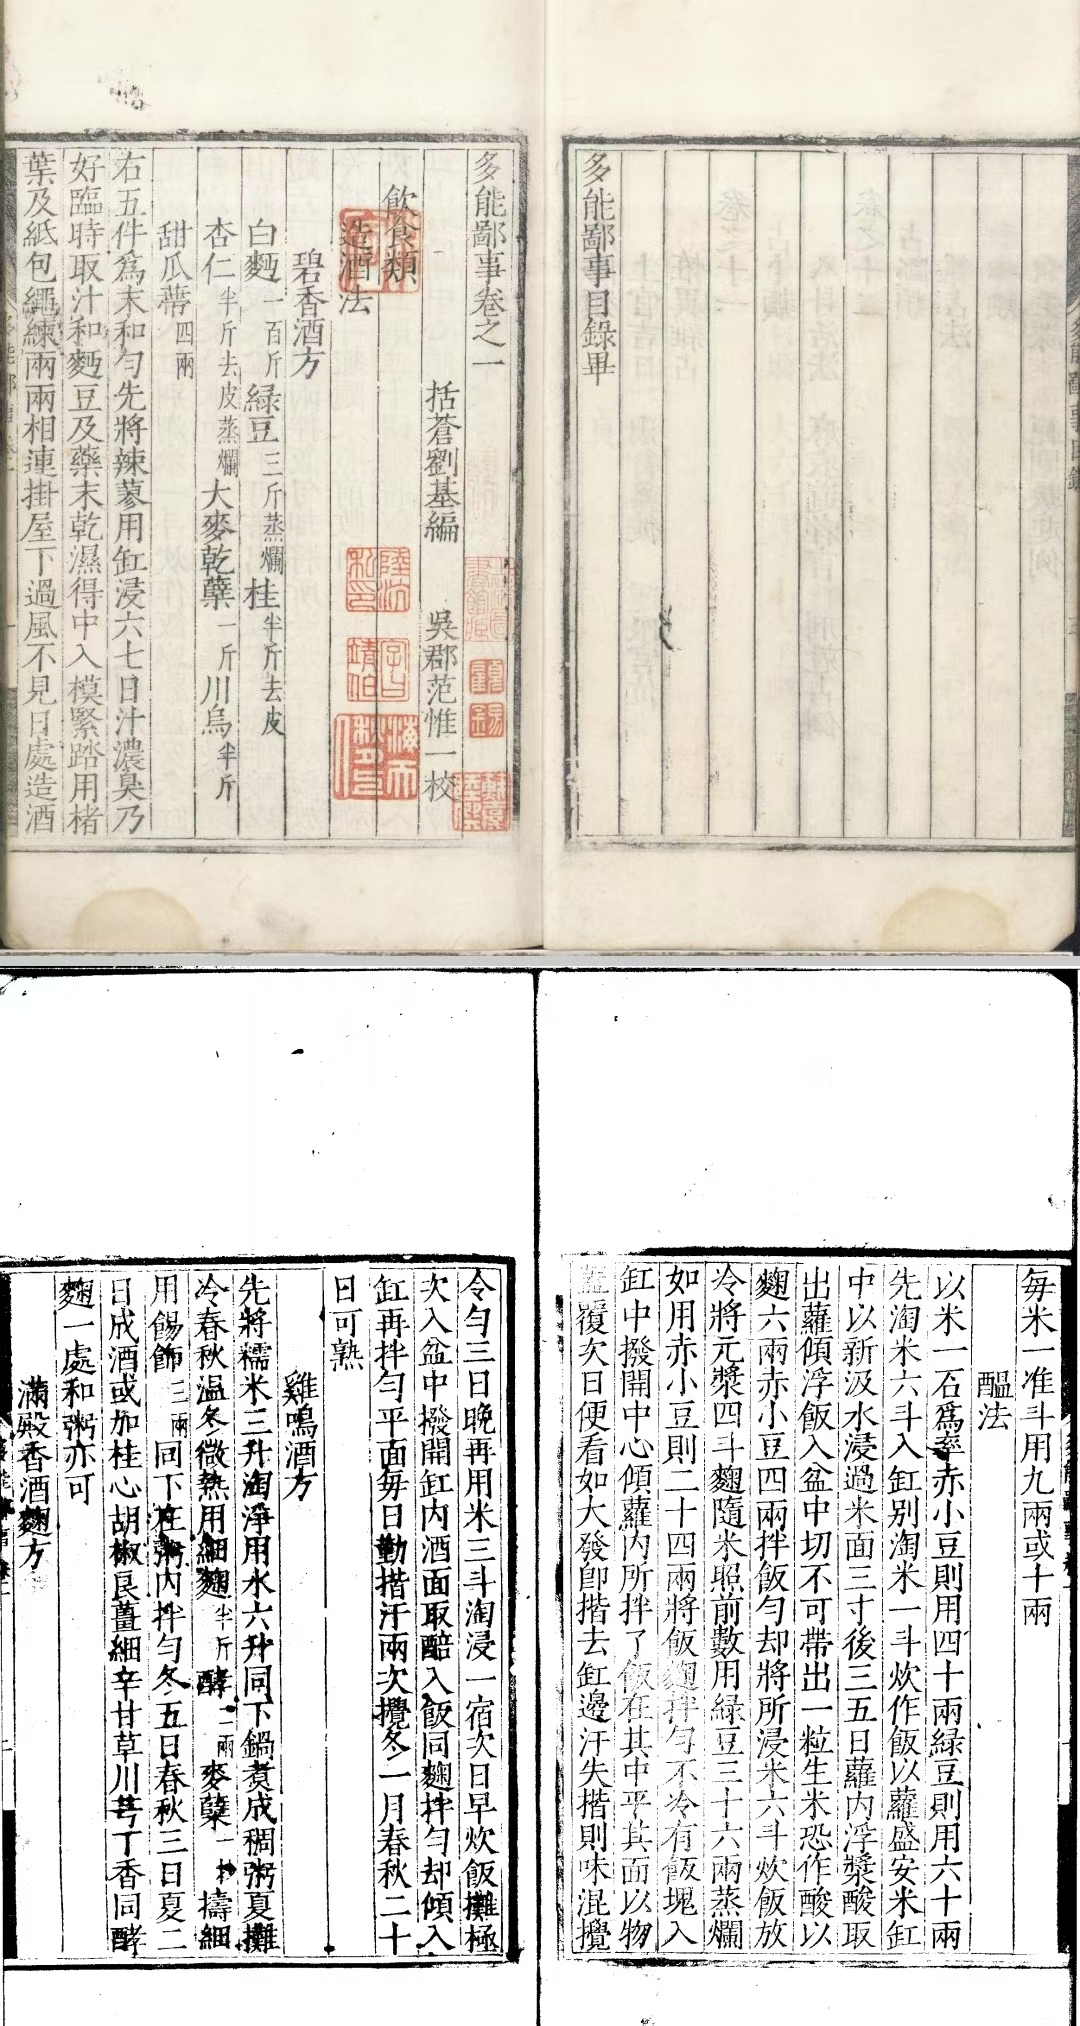 多能鄙事目錄畢
多能鄙事卷之一
括蒼劉基編　吳郡范惟一校
飲食類
造酒法
碧香酒方
白麫一百斤綠豆三斤蒸爛桂半斤去皮
杏仁半斤去皮蒸爛大麥乾糵一斤川烏半斤
甜瓜蔕四兩
右五件爲末和勻先將辣蓼用缸浸六七日汁濃臭乃
好臨時取汁和麫豆及藥末乾濕得中入模緊踏用楮
葉及紙包繩練兩兩相連掛屋下過風不見日處造酒
每米一准斗用九兩或十兩
醞法
以米一石爲率赤小豆則用四十兩綠豆則用六十兩
先淘米六斗入缸别淘米一斗炊作飯以蘿盛安米缸
中以新汲水浸過米面三寸後三五日蘿內浮漿酸取
出蘿傾浮飯入盆中切不可帶出一粒生米恐作酸以
麴六兩赤小豆四兩拌飯勻却將所浸米六斗炊飯放
冷將元漿四斗麴隨米照前數用綠豆三十六兩蒸爛
如用赤小豆則二十四兩將飯麴拌勻不冷有飯塊入
缸中撥開中心傾蘿內所拌了飯在其中平其面以物
蓋覆次日便看如大發卽揩去缸邊汗失揩則味混攪
令勻三日晚再用米三斗淘浸一宿次日早炊飯攤極
次入盆中撥開缸內酒面取醅入飯同麴拌勻却傾入
缸再拌勻平面每日勤揩汗兩次攪冬一月春秋二十
日可熟
雞鳴酒方
先將糯米三升淘淨用水六升同下鍋煑成稠粥夏攤
冷春秋温冬微熱用細麴半斤酵二兩麥糵一　擣細
用餳飾三兩同下在粥內拌勻冬五日春秋三日夏二
日成酒或加桂心胡椒良薑細辛甘草川芎丁香同酵
麴一處和粥亦可
滿殿香酒麴方